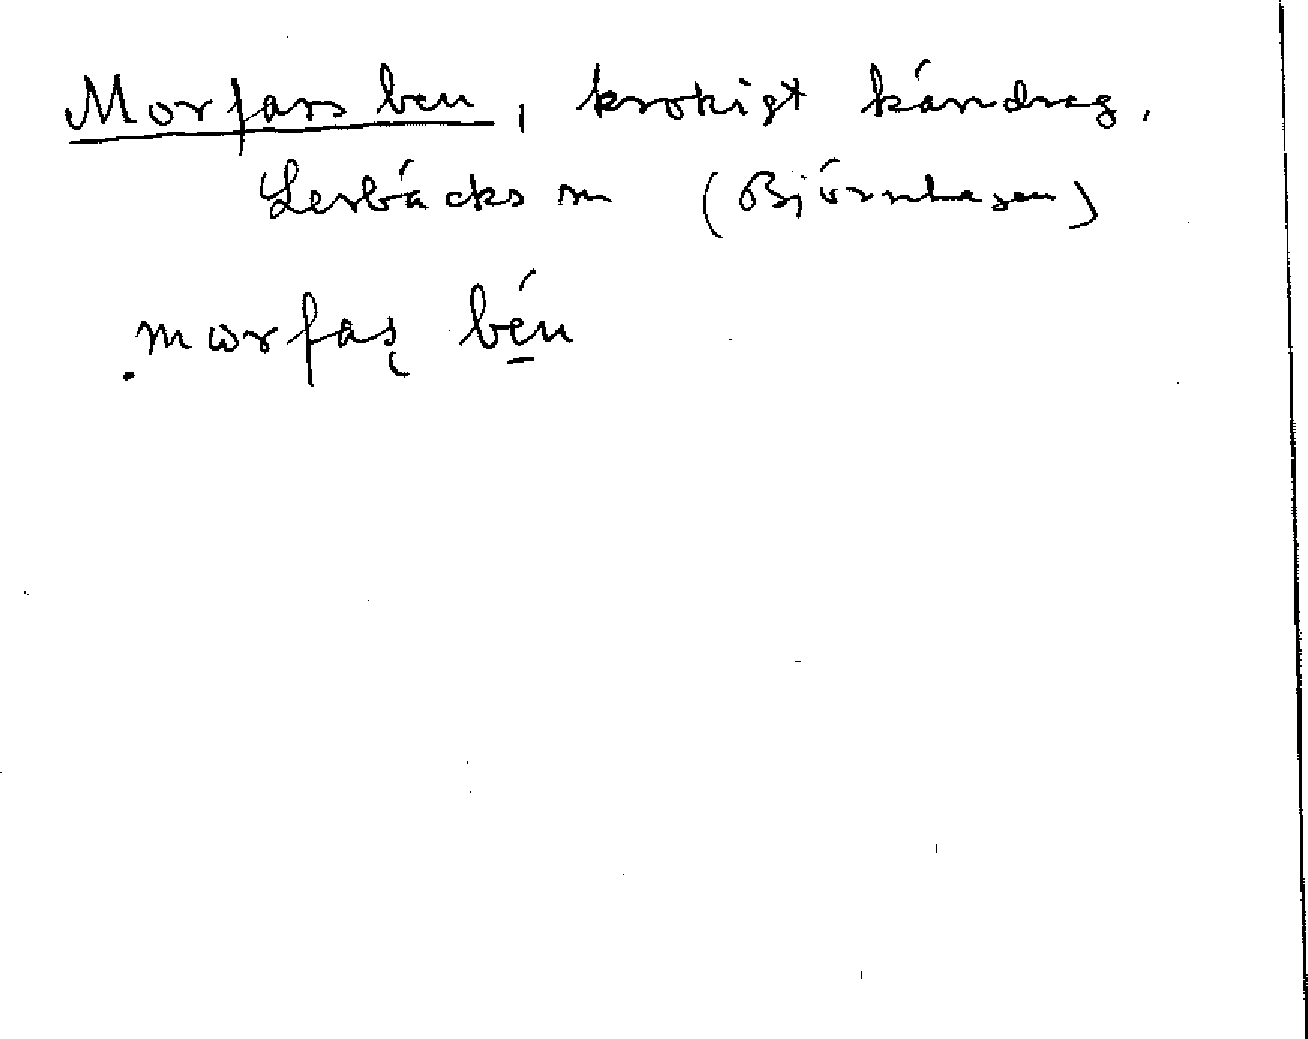 Morfars ben, krokigt kärrdrag.
Lerbäcks sn (Björnhesen)
morfaş bén